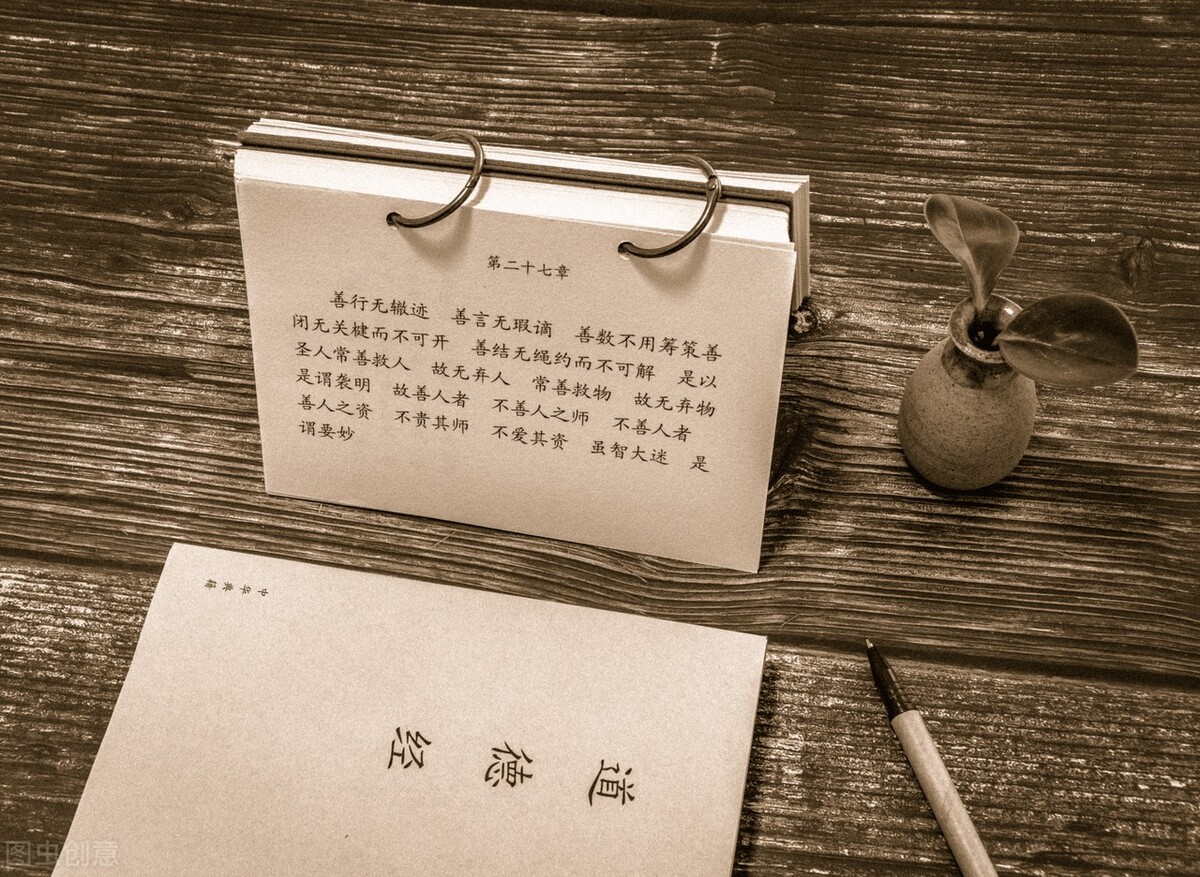 第二十七章
善行无辙迹 善言无瑕谪 善数不用筹策善
闭无关楗而不可开 善结无绳约而不可解 是以
圣人常善救人 故无弃人 常善救物 故无弃物
是谓袭明 故善人者 不善人之师 不善人者
善人之资 不贵其师 不爱其资 虽智大迷 是
谓要妙
中华典籍
道德经
图虫创意